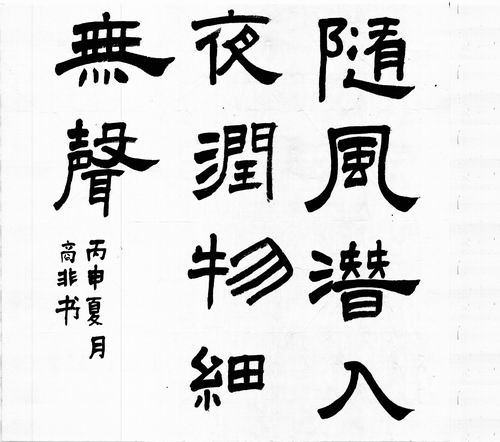 隨風潛入
夜潤物細
無聲
丙申夏月
高非书